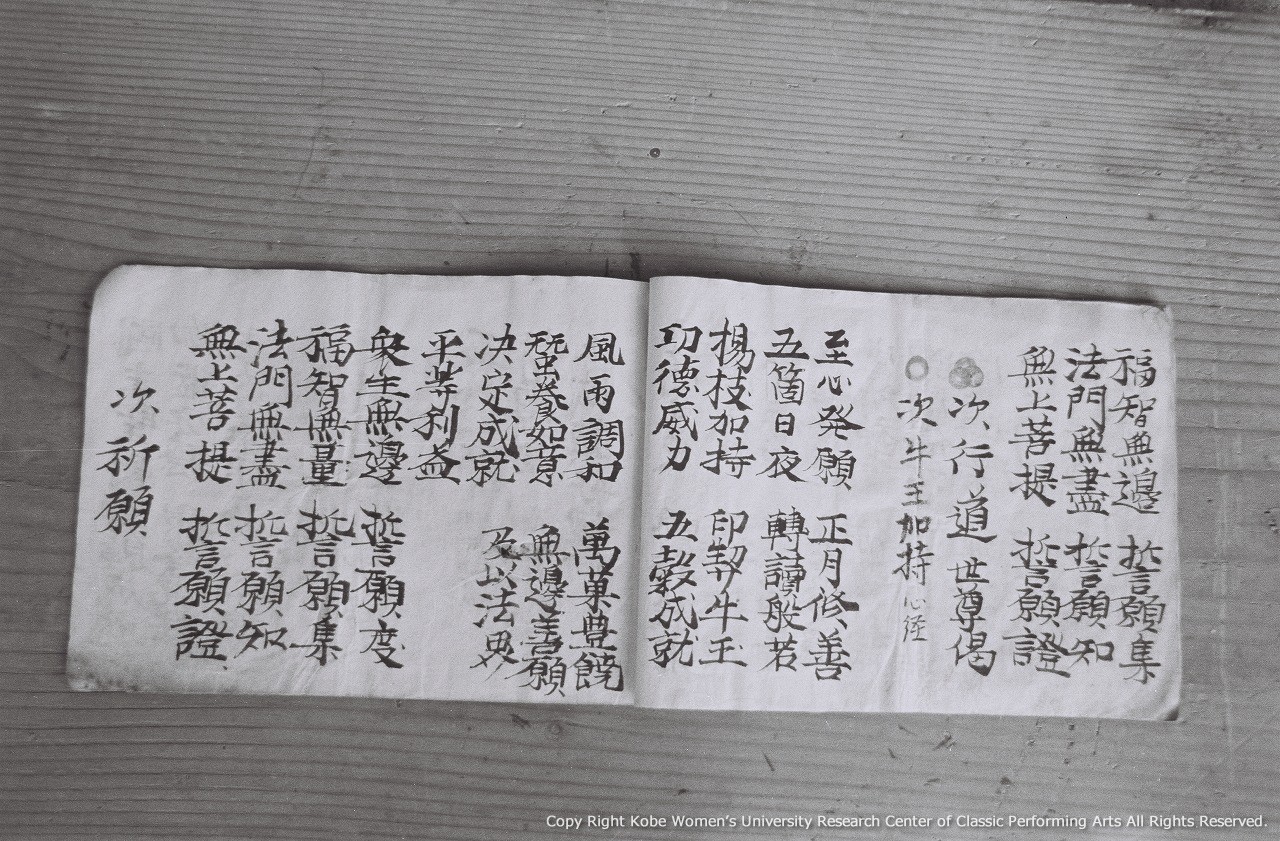 福智無邊 誓願集
法門無盡 誓願知
無上菩提 誓願證
次行道 世尊偈
次牛王加持 心経
至心発願 正月修善
五箇日夜 轉讀般若
楊枝加持 印契牛玉
功徳威力 五穀成就
風雨調和 萬菓豊饒
蚕養如意 無邊善願
决定成就 乃以法界
平等利益
衆生無邊 誓願度
福智無量 誓願集
法門無盡 誓願知
無上菩提 誓願證
次 祈願
Copy Right Kobe Women's University Research Center of Classic Performing Arts All Rights Reserved.